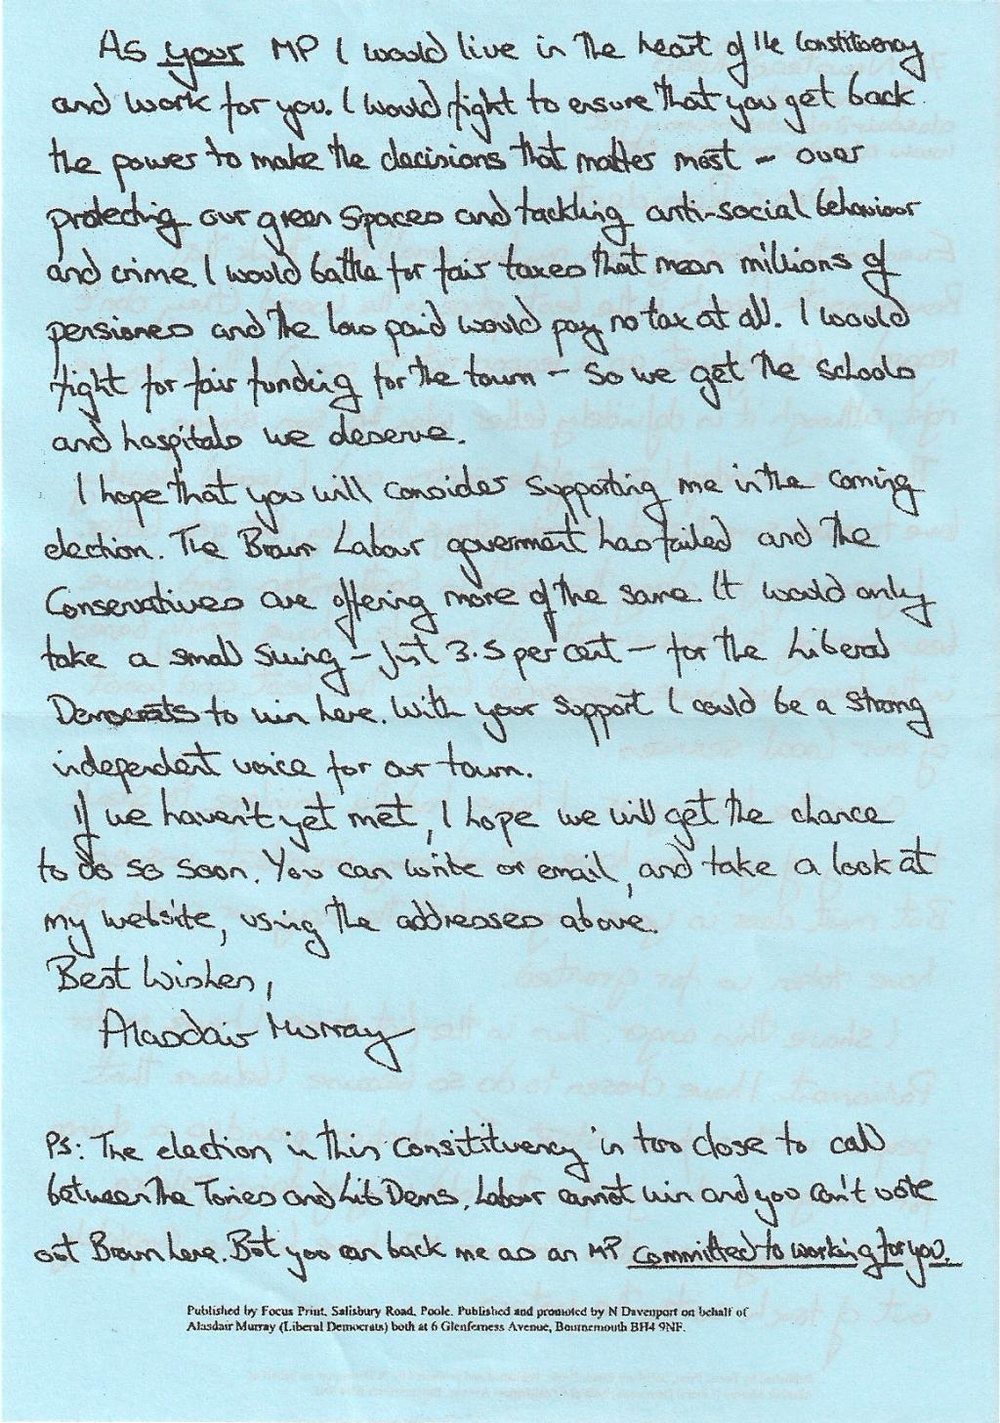 As your MP I would live in the heart of the Constituency
and work for you. I would fight to ensure that you get back
the power to make the decisions that matter most - over
protecting our green spaces and tackling anti-social behaviour
and crime. I would battle for fair taxes that mean millions of
pensioners and the low paid would pay no tax at all. I would
fight for fair funding for the town - so we get the schools
and hospitals we deserve.
I hope that you will consider supporting me in the coming
election. The Brown Labour government has failed and the
Conservatives are offering more of the same. It would only
take a small swing - just 3.5 per cent - for the Liberal
Democrats to win here. With your support I could be a strong
independent voice for our town.
If we haven't yet met, I hope we will get the chance
to do so soon. You can write or email, and take a look at
my website, using the addresses above.
Best Wishes,
Alasdair Murray
Ps: The election in this Consitituency is too close to call
between the Tories and Lib Dems. Labour cannot win and you can't vote
out Brown here. But you can back me as an MP committed to working for you.
Published by Focus Print, Salisbury Road, Poole. Published and promoted by N Davenport on behalf of
Alasdair Murray (Liberal Democrats) both at 6 Glenferness Avenue, Bournemouth BH4 9NF.